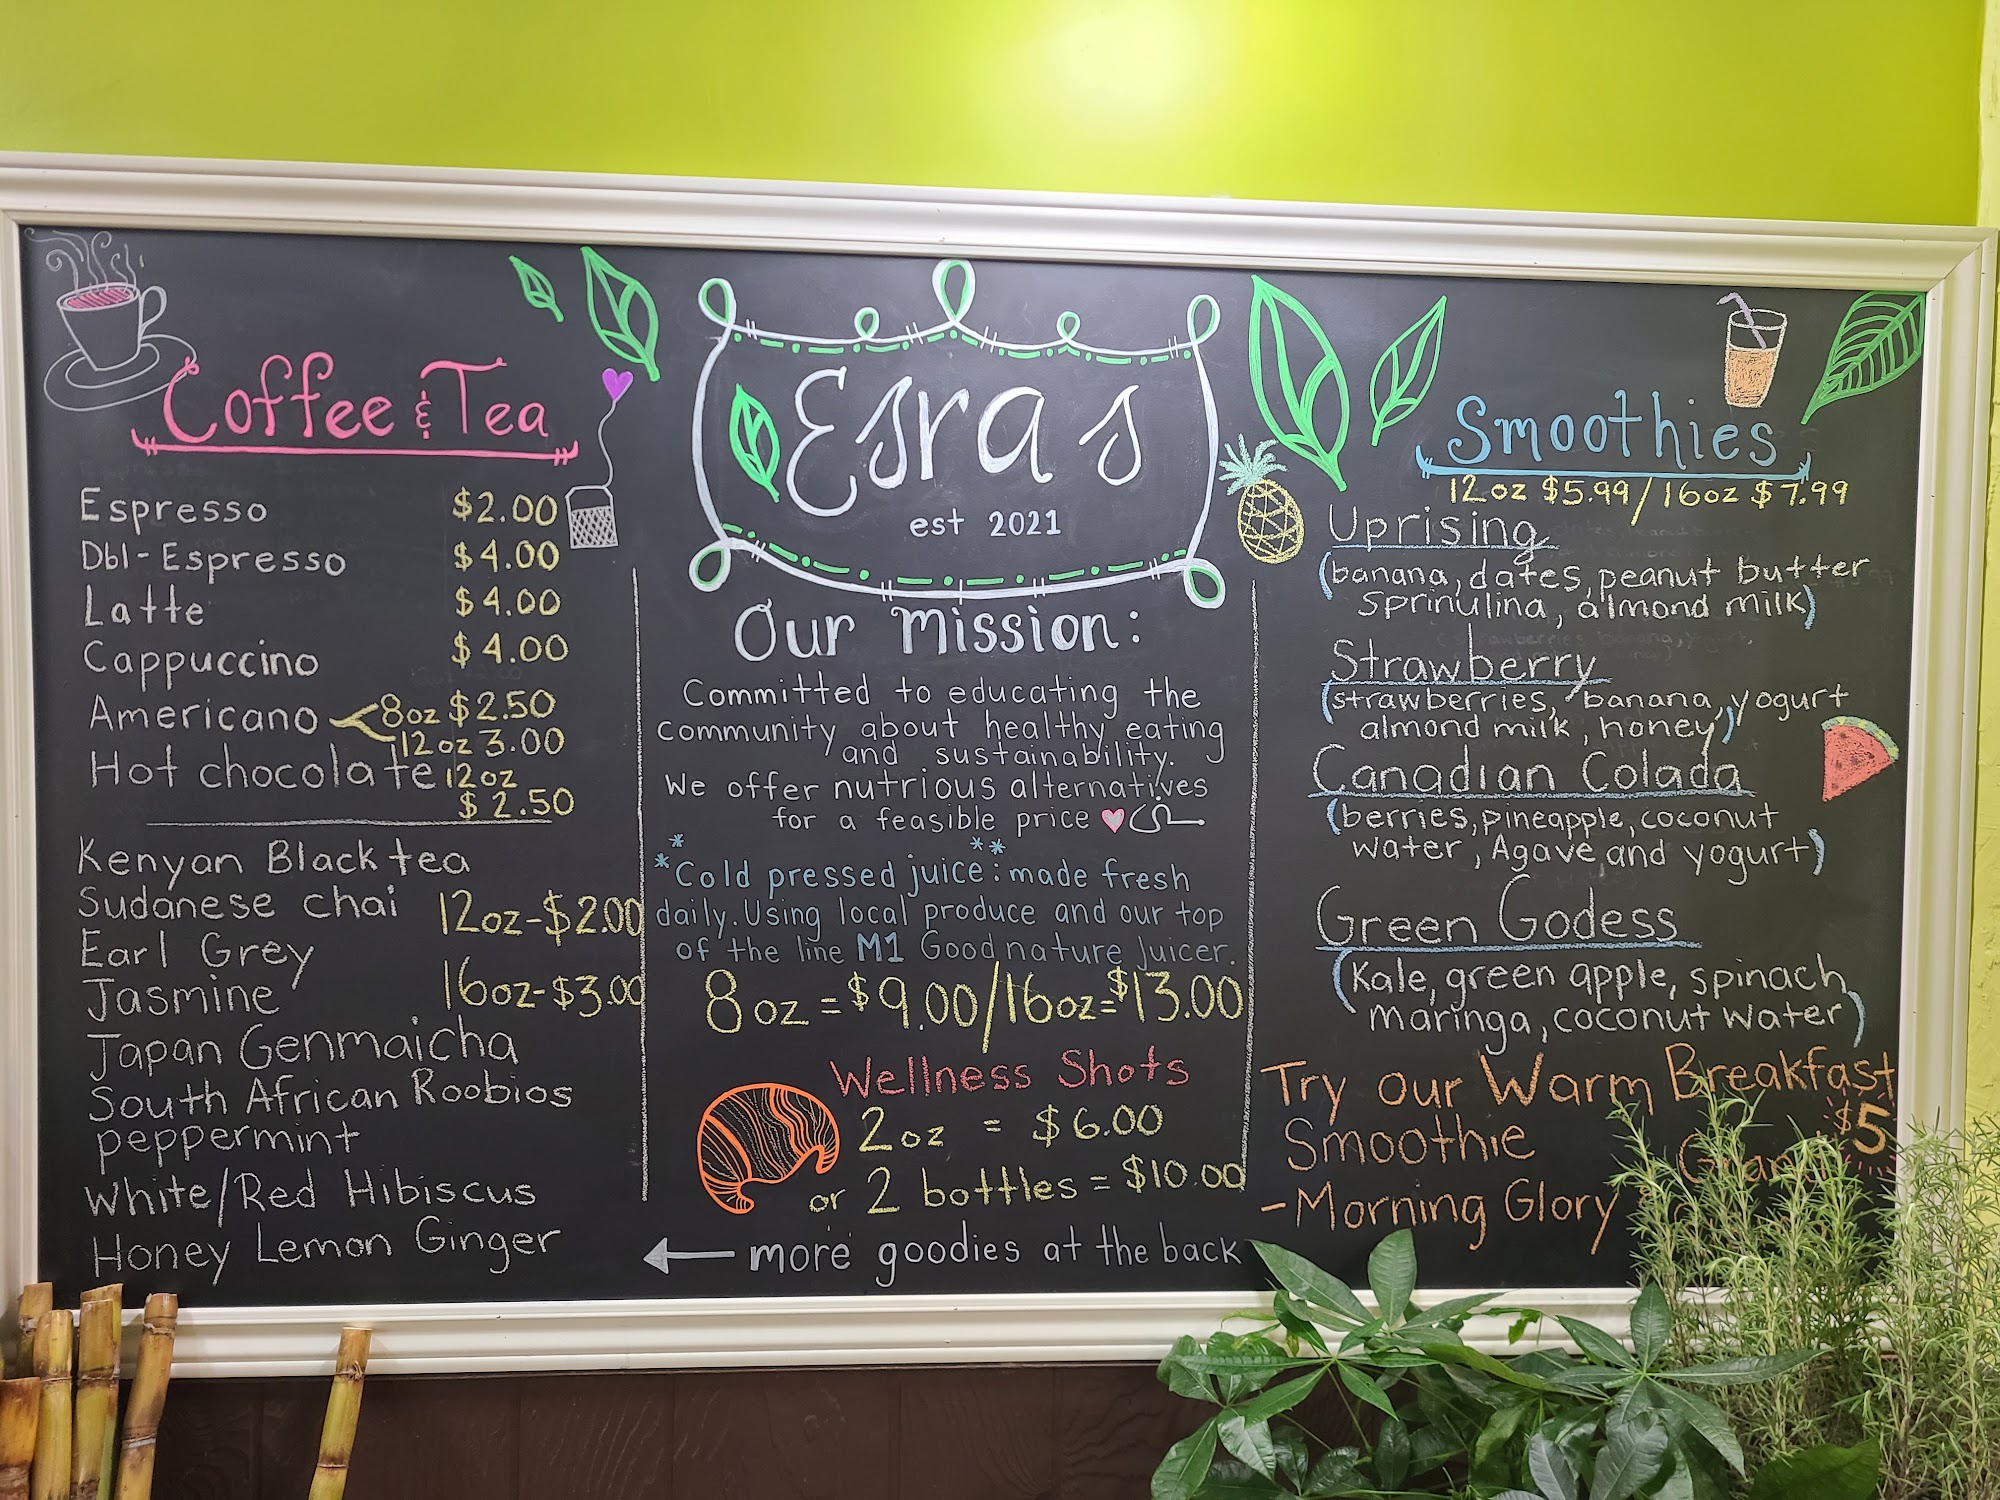 Coffee & Tea
Espresso $2.00
Dbl-Espresso $4.00
Latte $4.00
Cappuccino $4.00
Americano 8oz $2.50
12oz 3.00
Hot chocolate 12oz
$2.50
Kenyan Black tea
Sudanese chai 12oz-$2.00
Earl Grey
Jasmine 16oz-$3.00
Japan Genmaicha
South African Roobios
peppermint
White/Red Hibiscus
Honey Lemon Ginger
Esra's
est 2021
Our mission:
Committed to educating the
community about healthy eating
and sustainability.
We offer nutrious alternatives
for a feasible price
*Cold pressed juice**: made fresh
daily. Using local produce and our top
of the line M1 Good nature juicer.
8oz = $9.00/16oz=$13.00
Wellness Shots
2oz = $6.00
or 2 bottles = $10.00
more goodies at the back
Smoothies
12oz $5.99/16oz $7.99
Uprising
(banana, dates, peanut butter
Sprinulina, almond milk)
Strawberry
(strawberries, banana, yogurt
almond milk, honey)
Canadian Colada
(berries, pineapple, coconut
water, Agave and yogurt)
Green Godess
(Kale, green apple, spinach,
maringa, coconut water)
Try our Warm Breakfast
Smoothie $5
-Morning Glory